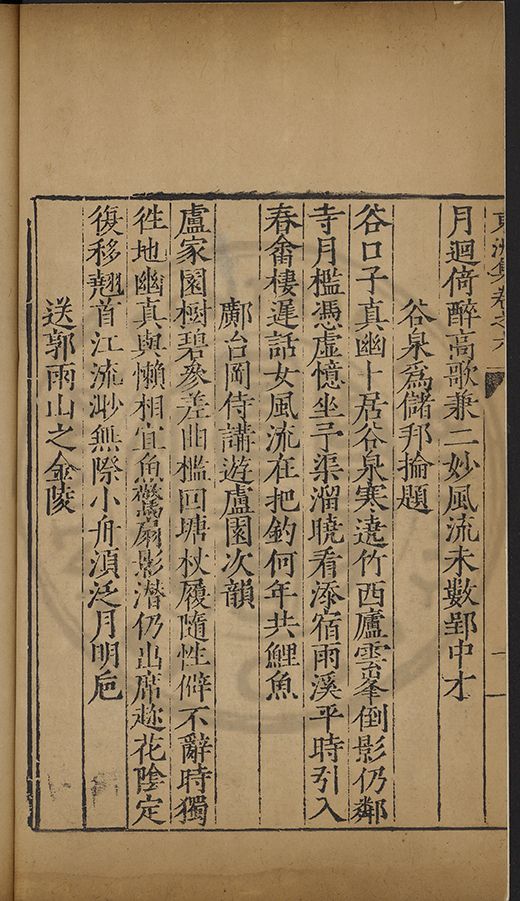 東洲集卷之六
月迴倚醉高歌兼二妙風流未數郢中才
谷泉爲儲邦掄題
谷口子真幽卜居谷泉寒遶竹西廬雲峯倒影仍鄰
寺月檻憑虛憶坐予渠溜曉看添宿雨溪平時引入
春畬棲遲話女風流在把釣何年共鯉魚
鄺台岡侍講遊盧園次韻
盧家園樹碧參差曲檻回塘杖履隨性僻不辭時獨
徃地幽真與懶相宜魚驚扇影潛仍出席趂花陰定
復移翹首江流渺無際小舟湏泛月明巵
送郭雨山之金陵